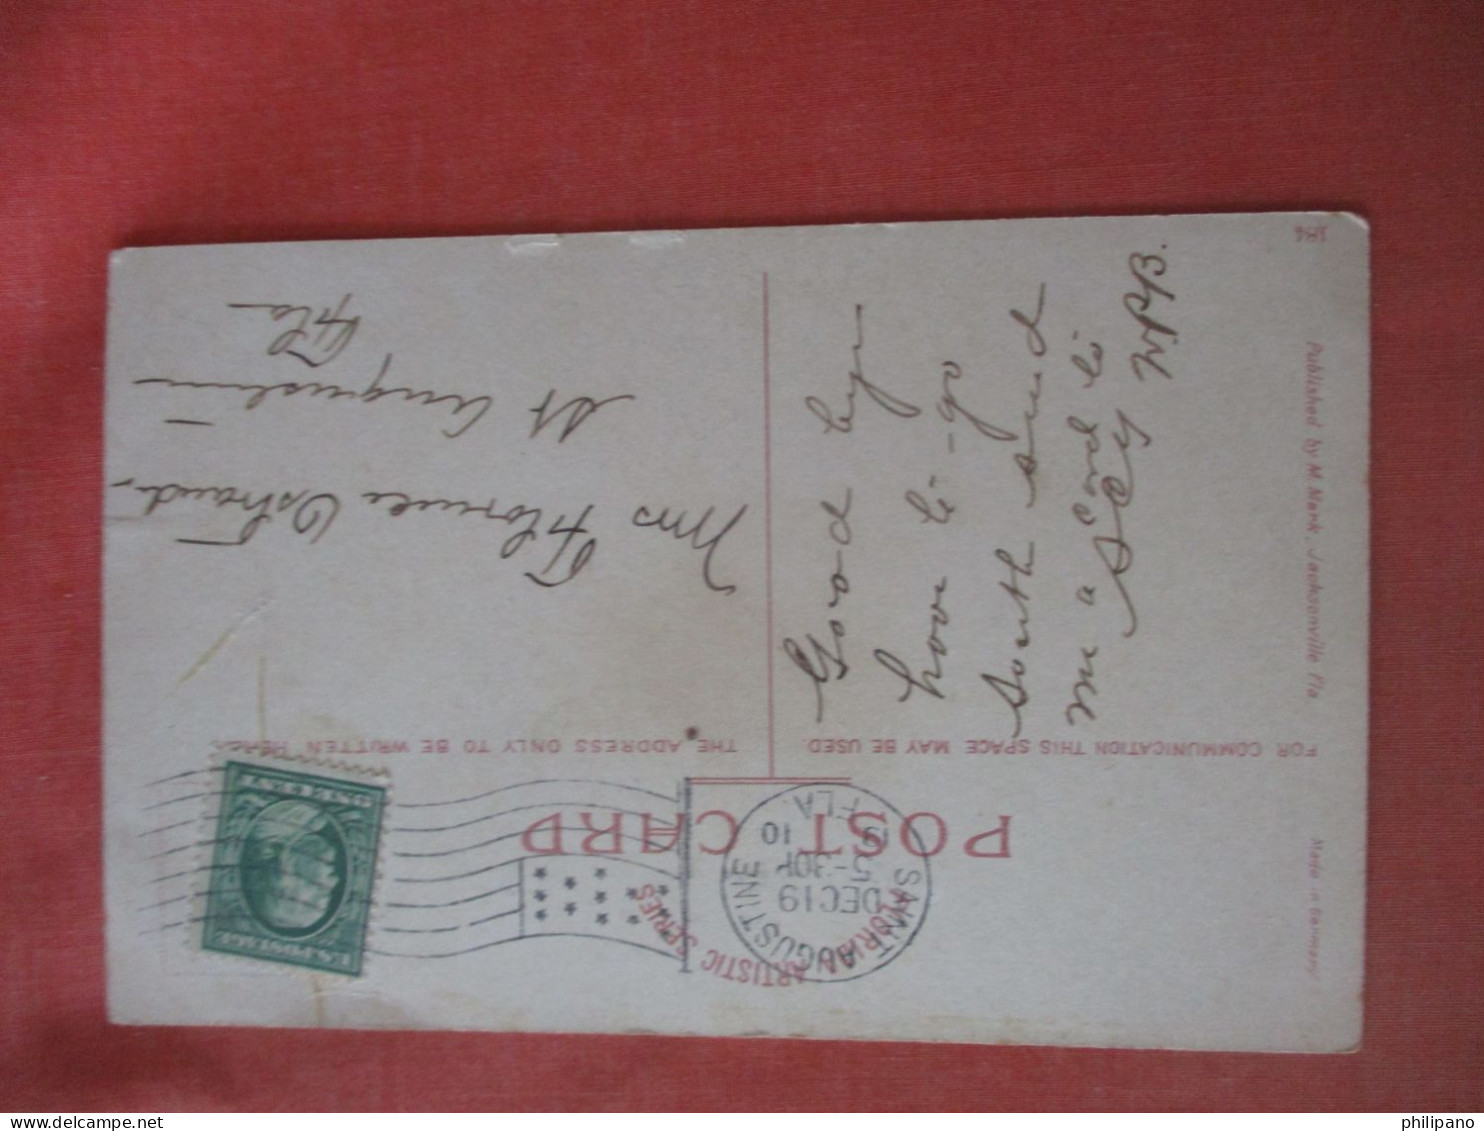 POST CARD
FLORIDA ARTISTIC SERIES
FOR COMMUNICATION THIS SPACE MAY BE USED.
THE ADDRESS ONLY TO BE WRITTEN HERE.
SAINT AUGUSTINE
DEC 19
5-30P
19 10
FLA.
U.S. POSTAGE
ONE CENT
Good bye
have to go
South send
me a Card to
W.P.B.
Mrs Florence Ostrand.
St Augustine
Fla
Published by M. Mark, Jacksonville Fla.
Made in Germany
184
philipano